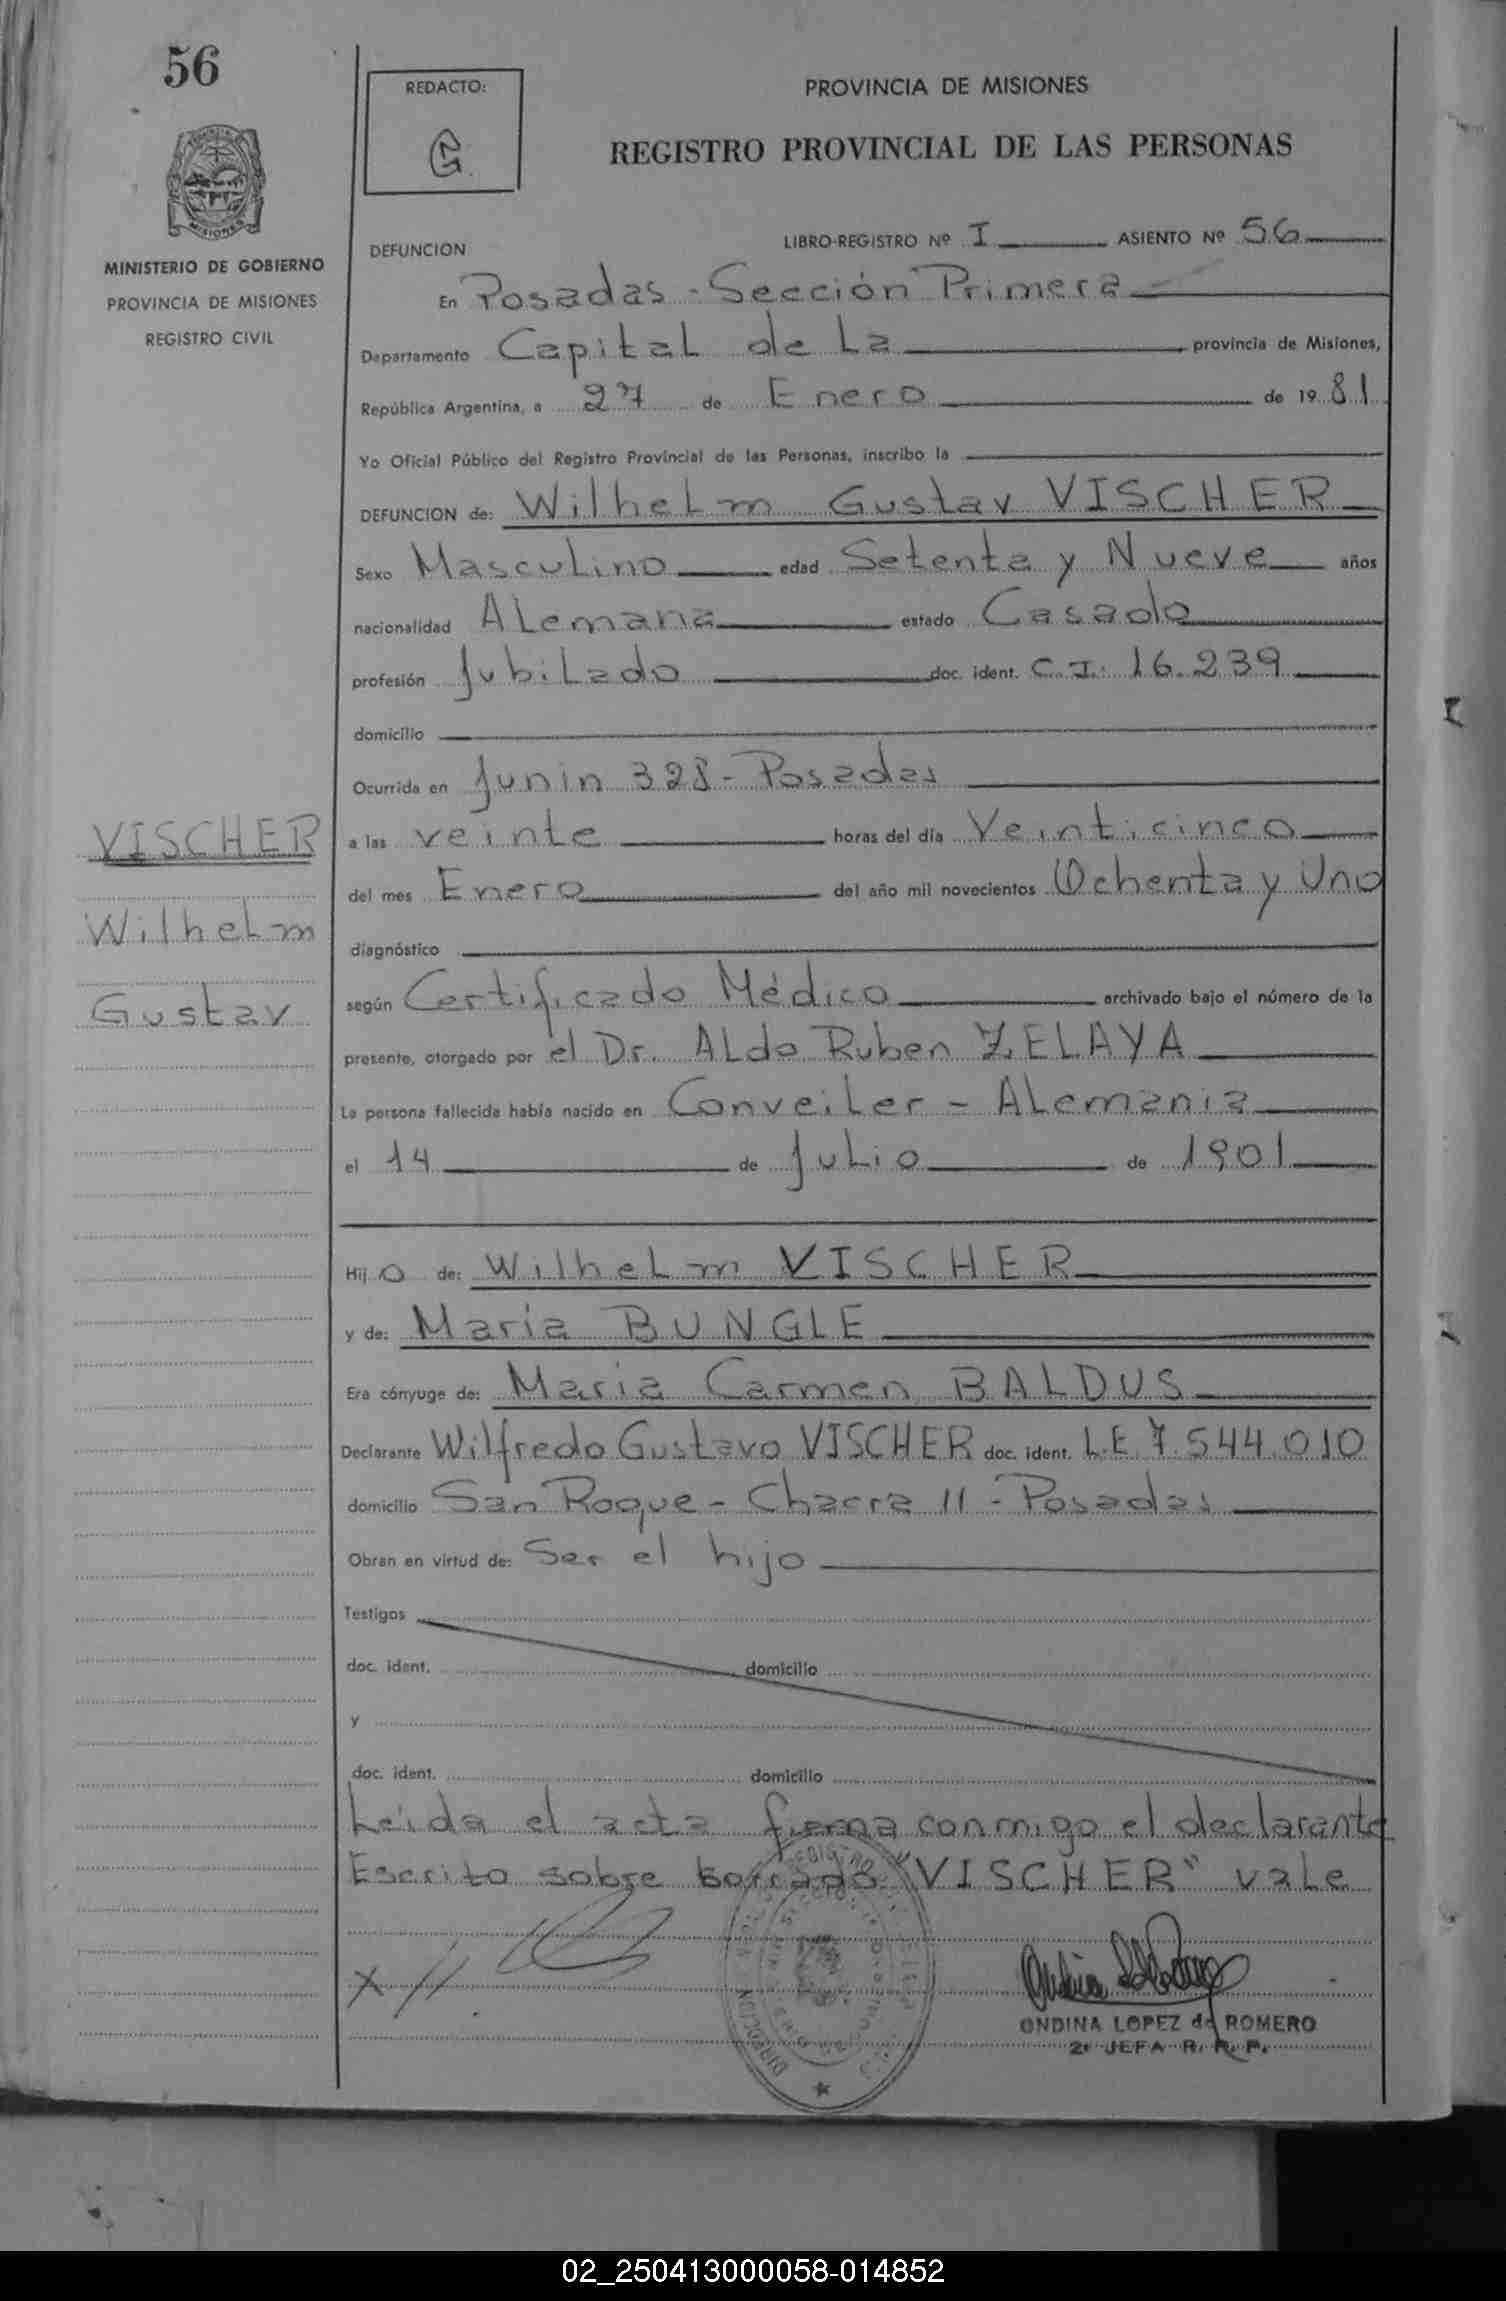 56
REDACTO:
G.
MISIONES
MINISTERIO DE GOBIERNO
PROVINCIA DE MISIONES
REGISTRO CIVIL
PROVINCIA DE MISIONES
REGISTRO PROVINCIAL DE LAS PERSONAS
LIBRO-REGISTRO Nº I ASIENTO Nº 56
DEFUNCION
En Posadas - Sección Primera
Departamento Capital de La provincia de Misiones,
República Argentina, a 27 de Enero de 1981
Yo Oficial Público del Registro Provincial de las Personas, inscribo la
DEFUNCION de: Wilhelm Gustav VISCHER
Sexo Masculino edad Setenta y Nueve años
nacionalidad Alemana estado Casado
profesión Jubilado doc. ident. C.I: 16.239
domicilio
Ocurrida en Junin 328 - Posadas
a las veinte horas del día Veinticinco
del mes Enero del año mil novecientos Ochenta y Uno
diagnóstico
según Certificado Médico archivado bajo el número de la
presente, otorgado por el Dr. Aldo Ruben ZELAYA
La persona fallecida había nacido en Conveiler - Alemania
el 14 de Julio de 1901
Hijo de: Wilhelm VISCHER
y de: Maria BUNGLE
Era cónyuge de: Maria Carmen BALDUS
Declarante Wilfredo Gustavo VISCHER doc. ident. L.E. 7.544.010
domicilio San Roque - Chacra 11 - Posadas
Obran en virtud de: Ser el hijo
Testigos
doc. ident. domicilio
y
doc. ident. domicilio
Leida el acta firma conmigo el declarante
Escrito sobre borrado "VISCHER" vale
VISCHER
Wilhelm
Gustav
ONDINA LOPEZ de ROMERO
2ª JEFA R. R. P.
02_250413000058-014852